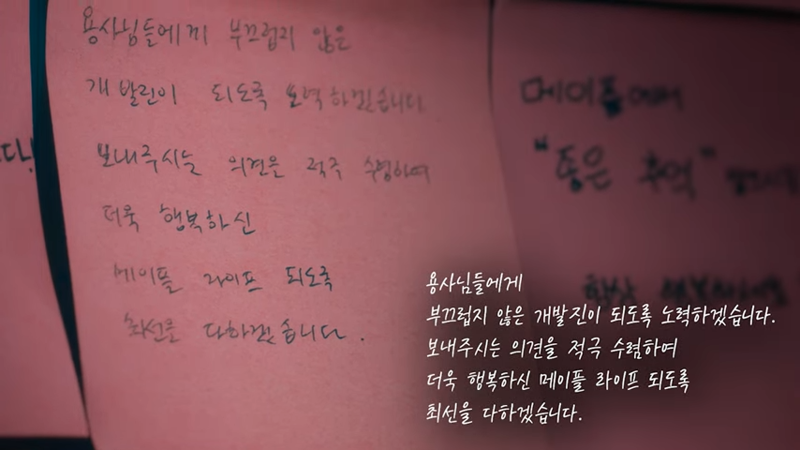 다!
용사님들에게 부끄럽지 않은
개발진이 되도록 노력하겠습니다
보내주시는 의견을 적극 수렴하여
더욱 행복하신
메이플 라이프 되도록
최선을 다하겠습니다.
메이플에서
"좋은 추억"
항상
용사님들에게
부끄럽지 않은 개발진이 되도록 노력하겠습니다.
보내주시는 의견을 적극 수렴하여
더욱 행복하신 메이플 라이프 되도록
최선을 다하겠습니다.